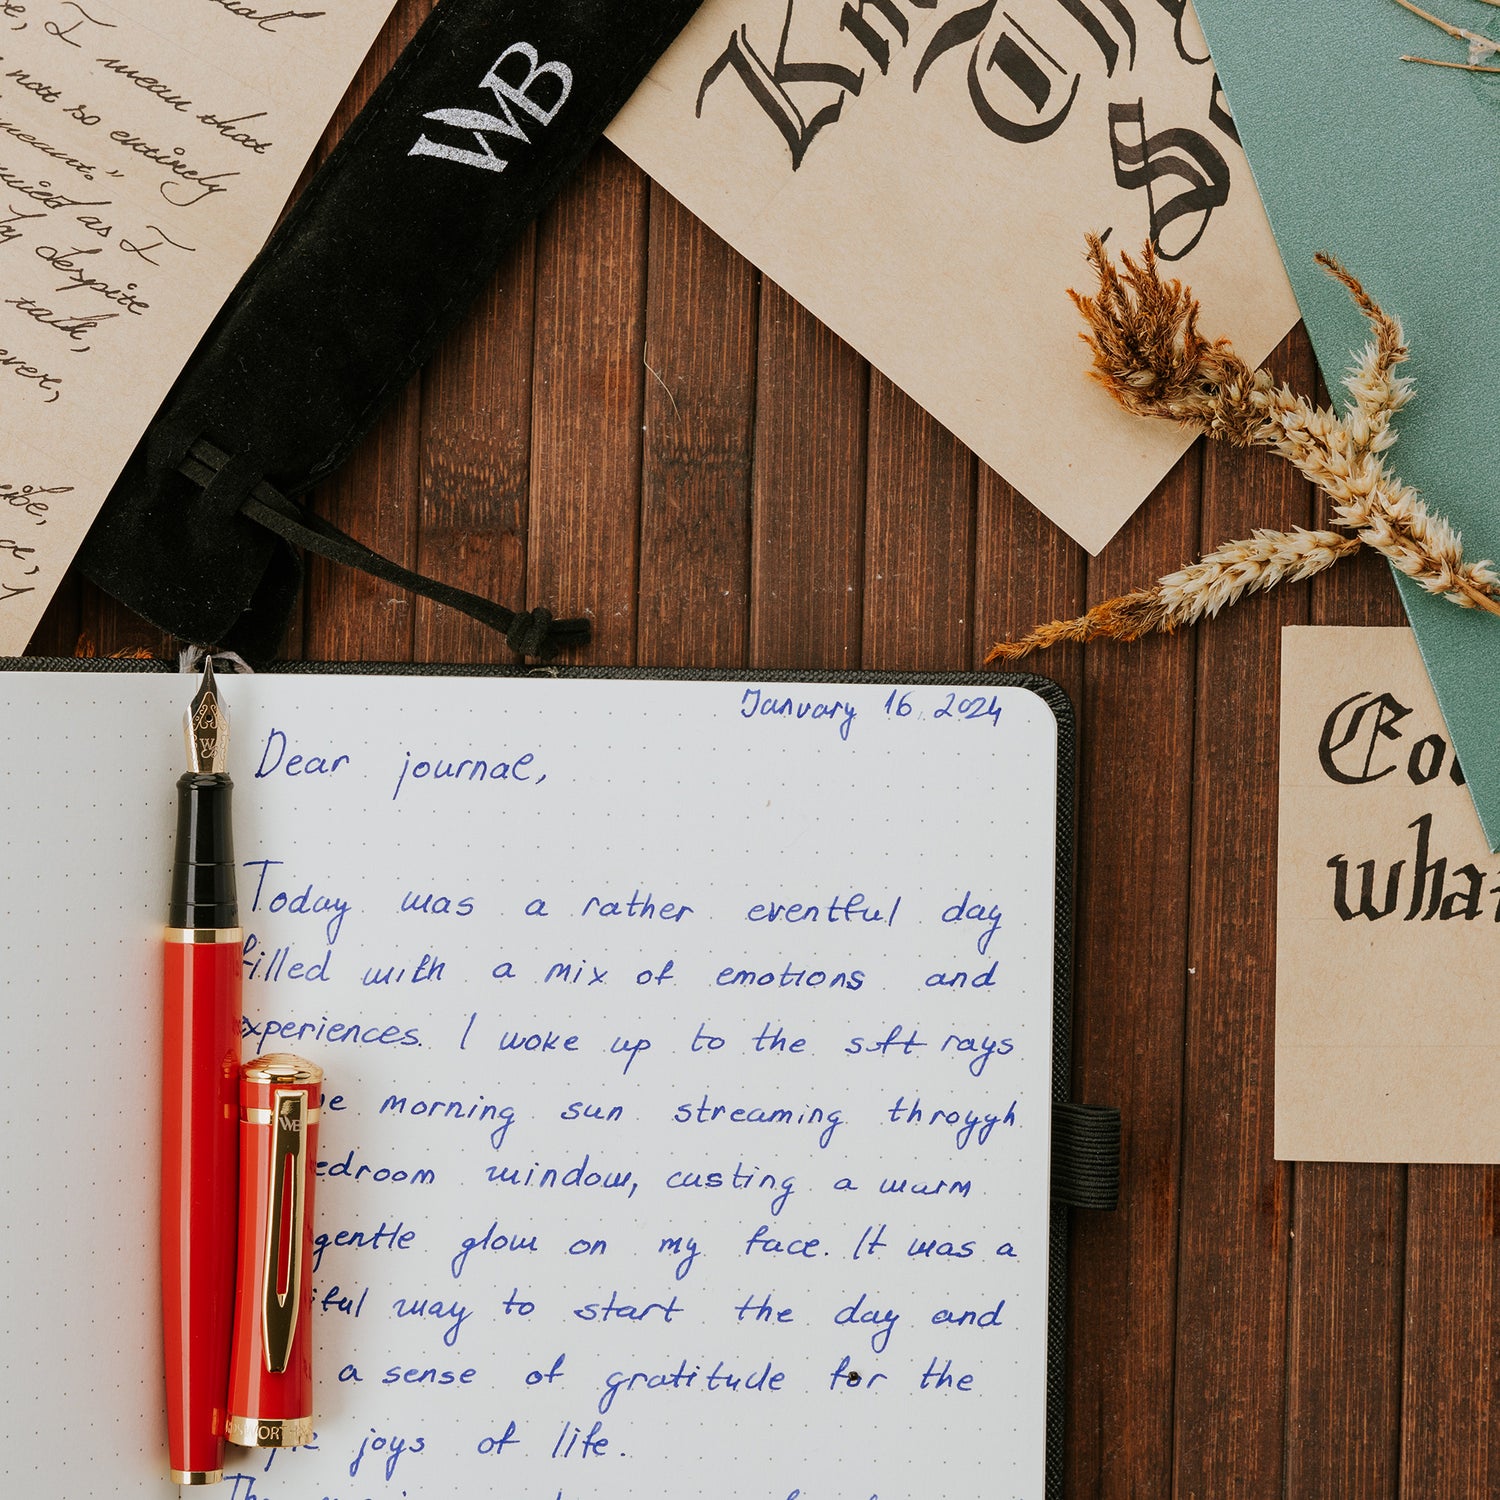 I mean that
not so entirely
meant."
as I
despite
talk,
WB
January 16, 2024
Dear journal,
Today was a rather eventful day
filled with a mix of emotions and
experiences. I woke up to the soft rays
morning sun streaming throygh
window, casting a warm
gentle glow on my face. It was a
way to start the day and
a sense of gratitude for the
joys of life.
WB